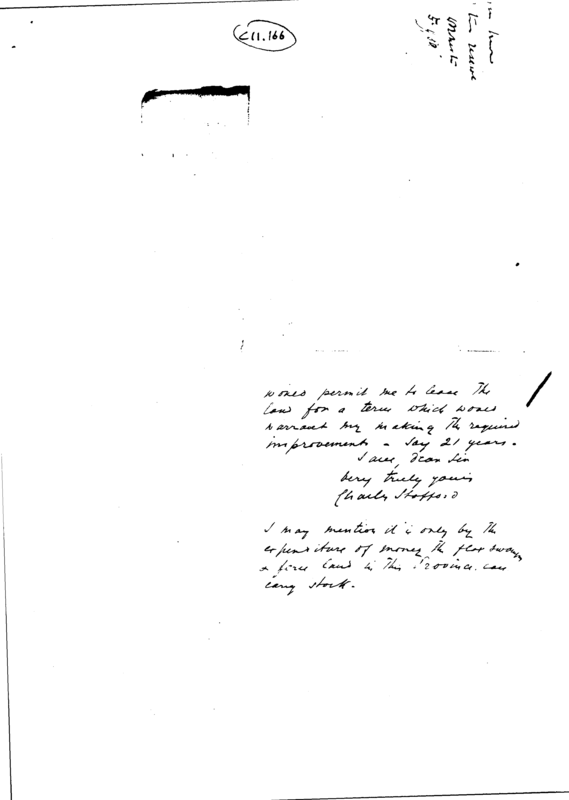 C11.166
would permit me to lease the
land for a term which would
warrant my making the required
improvements - say 21 years.
I am, Dear Sir
Very truly yours
Charles Stafford
I may mention it is only by the
expenditure of money the flax swamps
& fern land in this Province can
carry stock.